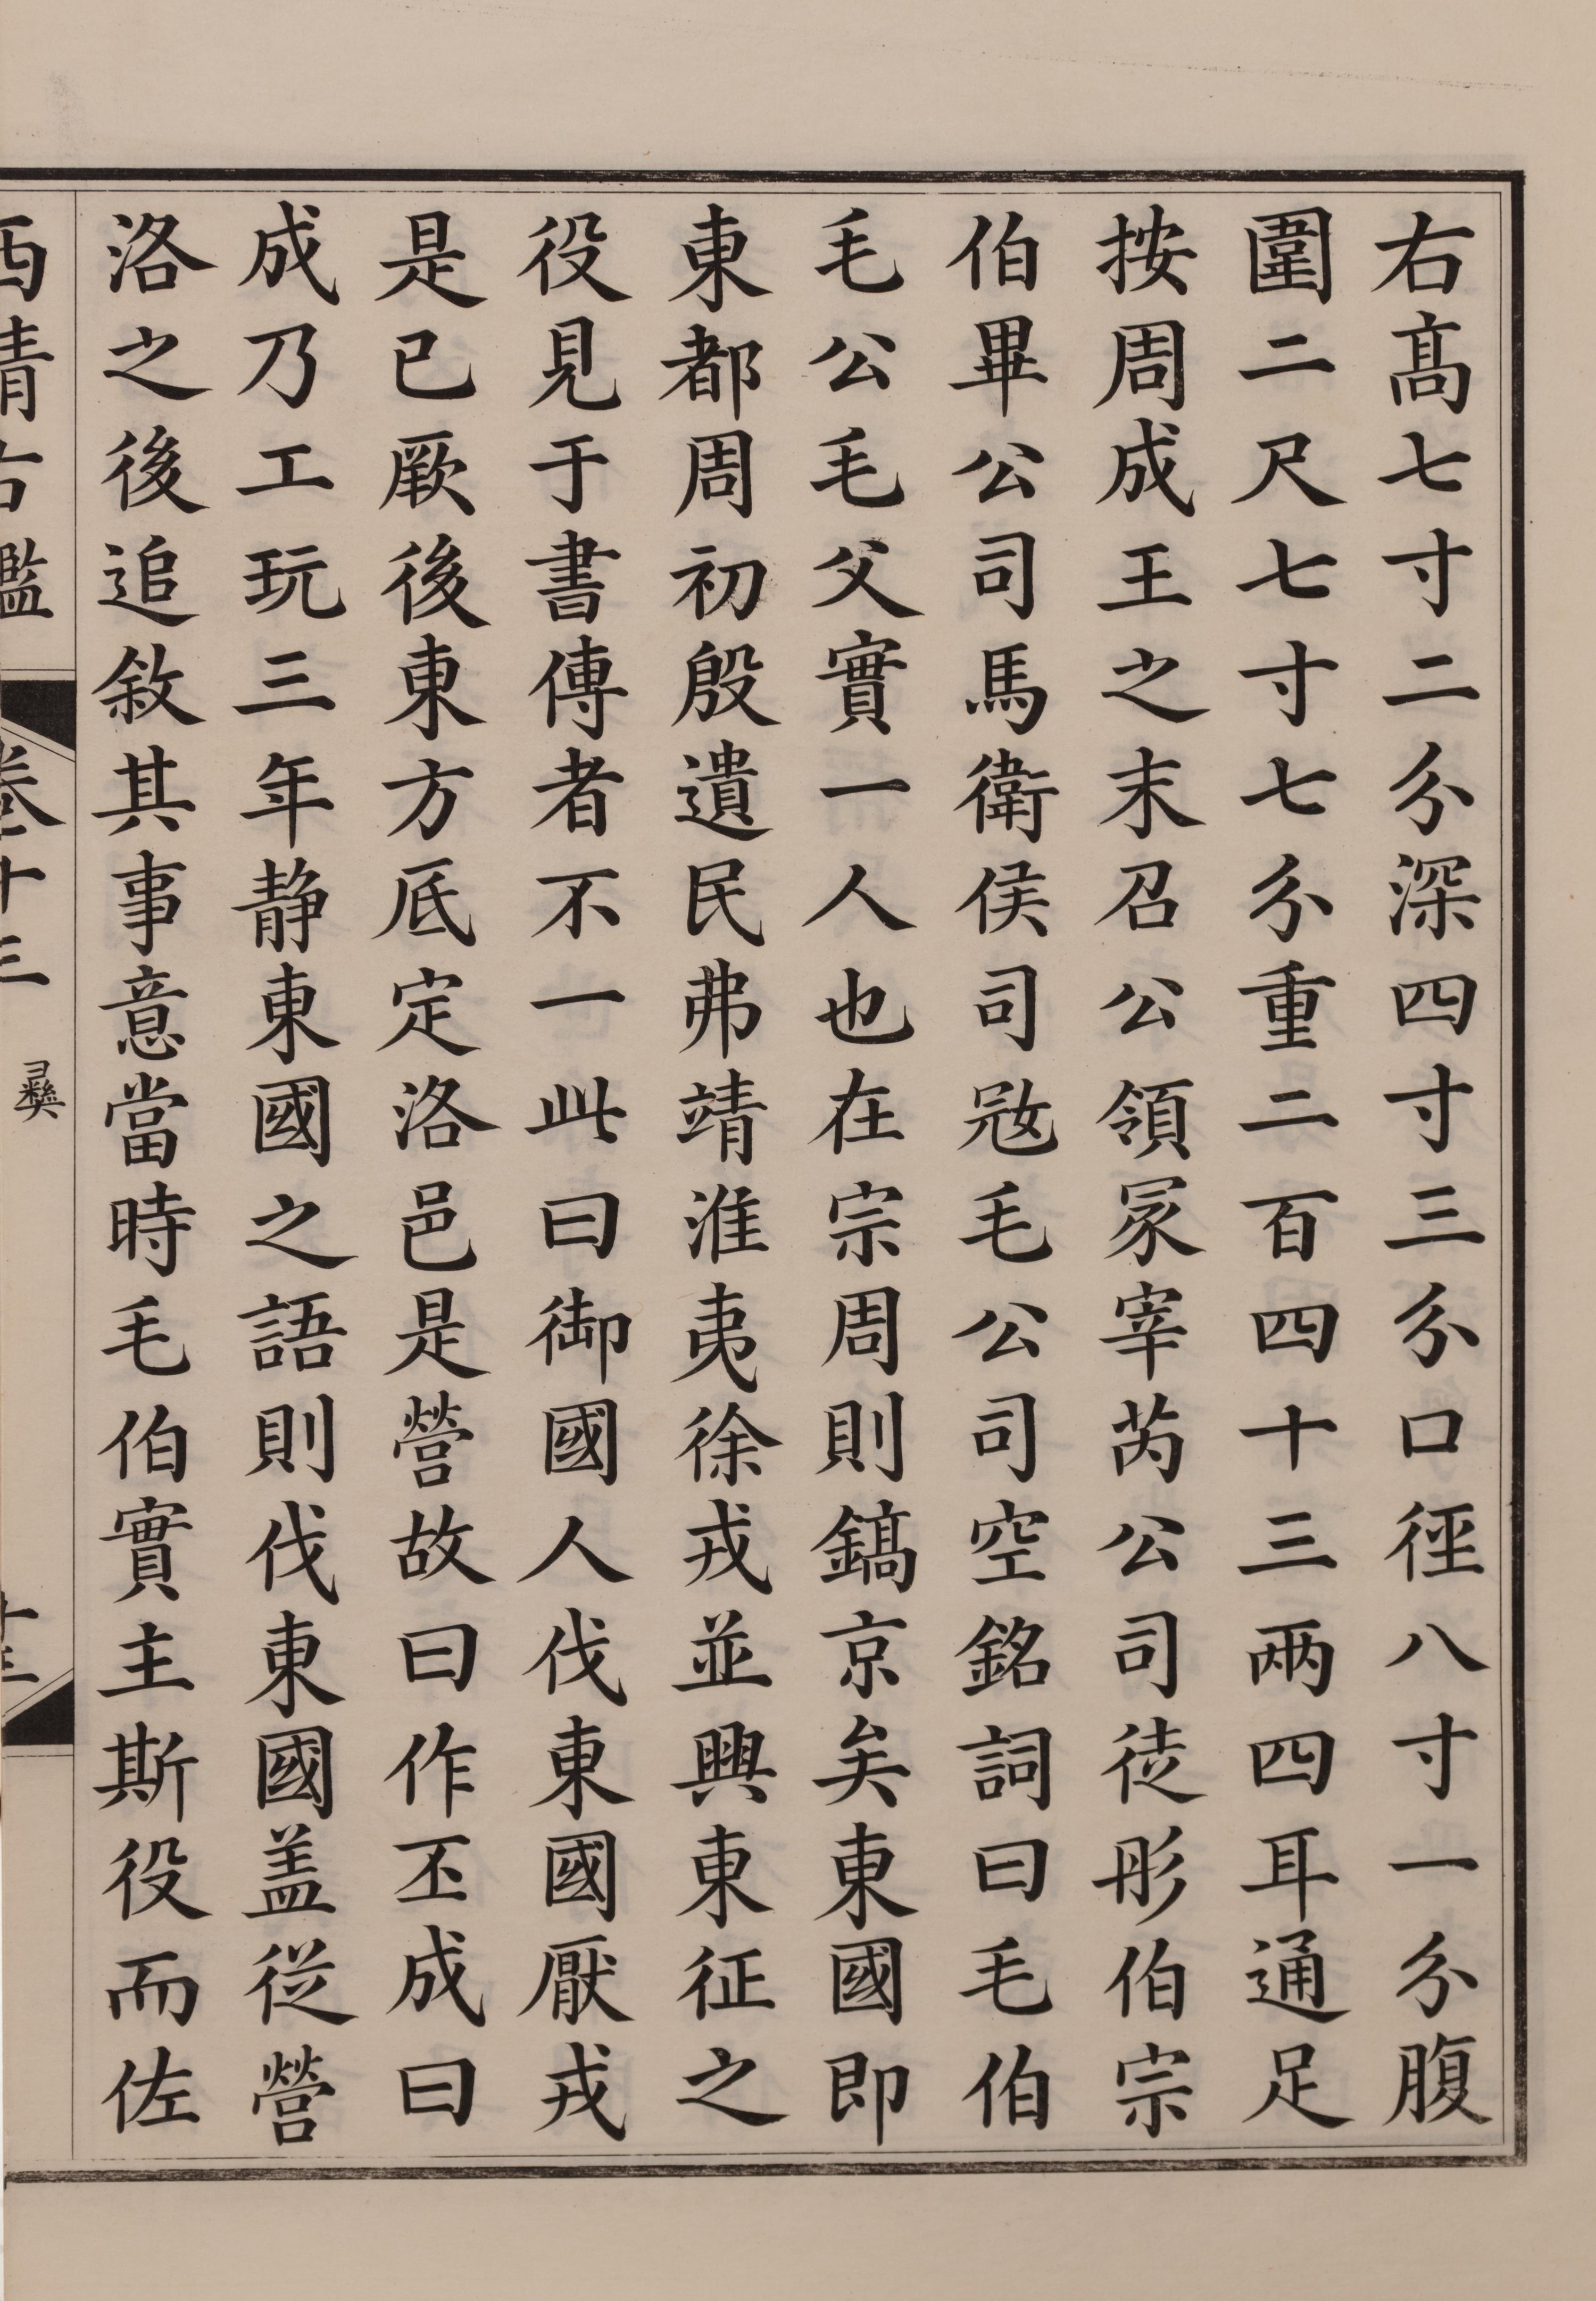 右髙七寸二分深四寸三分口徑八寸一分腹
圍二尺七寸七分重二百四十三兩四耳通足
按周成王之末召公領冢宰芮公司徒彤伯宗
伯畢公司馬衛侯司寇毛公司空銘詞曰毛伯
毛公毛父實一人也在宗周則鎬京矣東國即
東都周初殷遺民弗靖淮夷徐戎並興東征之
役見于書傳者不一此曰御國人伐東國厭戎
是已厥後東方厎定洛邑是營故曰作丕成曰
成乃工玩三年静東國之語則伐東國盖從營
洛之後追敘其事意當時毛伯實主斯役而佐
西清古鑑 卷十三 彝 十三